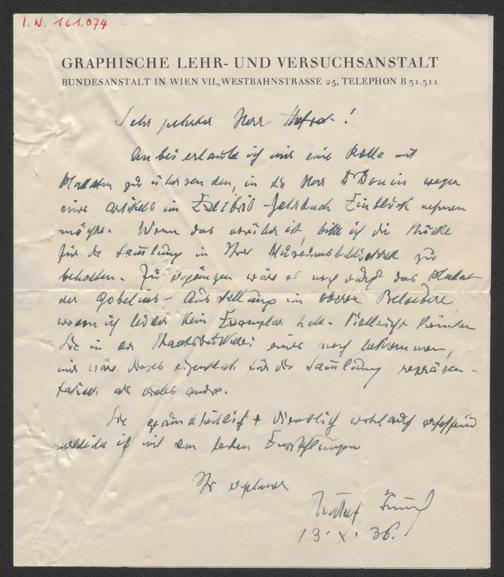 I. N. 161.074
GRAPHISCHE LEHR- UND VERSUCHSANSTALT
BUNDESANSTALT IN WIEN VII., WESTBAHNSTRASSE 25, TELEPHON B 31.511
Sehr geehrter Herr Hofrat!
Anbei erlaube ich mir eine Rolle mit
Plakaten zu übersenden, in die Herr Dr Donin wegen
eines Artikels im Exlibris-Jahrbuch Einblick nehmen
möchte. Wenn das erledigt ist bitte ich die Stücke
für die Samlung in Ihrer zu
behalten. Zu ergänzen wäre es noch durch das Plakat
der Gobelins-Ausstellung im oberen Belvedere
wovon ich leider kein Exemplar habe. Vielleicht könnten
Sie in der Staatsdruckerei eines noch bekommen,
mir wäre dieses eigentlich für die Samlung repräsen-
tativer als vieles andre.
Sie + dienstlich wohlauf
ich mit den besten Empfehlungen
Ihr ergebener
13. X. 36.